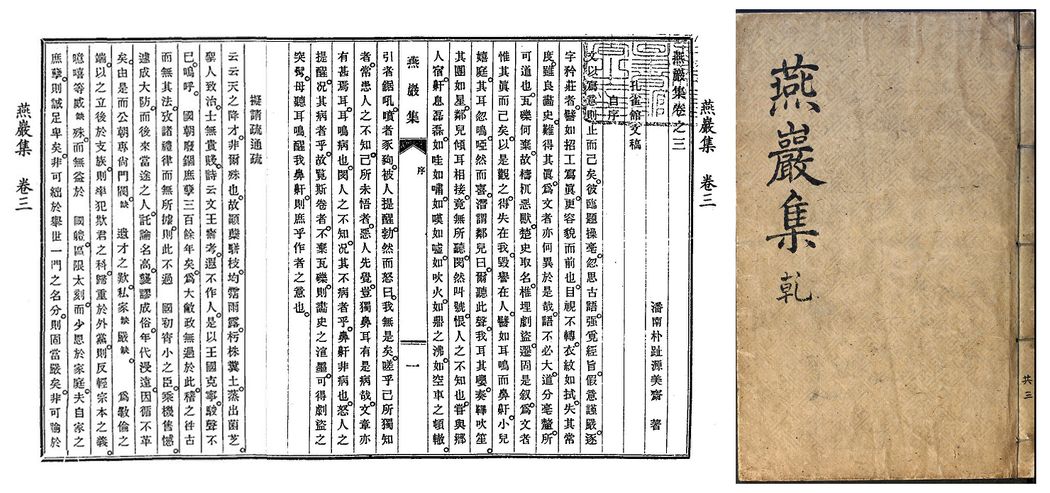 燕巖集 卷三
燕巖集卷之三
潘南朴趾源美齋 著
孔雀館文稿
自序
文以寫意則止而已矣。彼臨題操毫。忽思古語。强覓經旨。假意謹嚴。逐
字矜莊者。譬如招工寫眞。更容貌而前也。目視不轉。衣紋如拭。失其常
度。雖良畵史。難得其眞。爲文者亦何異於是哉。語不必大。道分毫釐。所
可道也。瓦礫何棄。故檮杌惡獸。楚史取名。椎埋劇盜。遷固是叙。爲文者
惟其眞而已矣。以是觀之。得失在我。毁譽在人。譬如耳鳴而鼻鼾。小兒
嬉庭。其耳忽鳴。啞然而喜。潛謂鄰兒曰。爾聽此聲。我耳其嚶。奏鞸吹笙。
其團如星。鄰兒傾耳相接。竟無所聽。閔然叫號。恨人之不知也。嘗與鄕
人宿。鼾息磊磊。如哇如嘯。如嘆如噓。如吹火。如鼎之沸。如空車之頓轍。
燕巖集 序 一
引者鋸吼。噴者豕豞。被人提醒。勃然而怒曰。我無是矣。嗟乎。己所獨知
者。常患人之不知。己所未悟者。惡人先覺。豈獨鼻耳有是病哉。文章亦
有甚焉耳。耳鳴病也。閔人之不知。况其不病者乎。鼻鼾非病也。怒人之
提醒。况其病者乎。故覽斯卷者。不棄瓦礫。則畵史之渲墨。可得劇盜之
突鬢。毋聽耳鳴。醒我鼻鼾。則庶乎作者之意也。
擬請疏通疏
云云。天之降才。非爾殊也。故顚蘖騈枝。均霑雨露。朽株糞土。蒸出菌芝。
聖人致治。士無貴賤。詩云文王壽考。遐不作人。是以王國克寧。駿聲不
已。嗚呼。 國朝廢錮庶孼三百餘年矣。爲大敝政無過於此。稽之往古
而無其法。攷諸禮律而無所據。則此不過 國初宵小之臣。乘機售憾。
遽成大防。而後來當途之人。託論名高。襲謬成俗。年代浸遠。因循不革
矣。由是而公朝專尙門閥。 遺才之歎。私家 嚴 。 爲斁倫之
端。以之立後於支族。則率犯欺君之科。歸重於外黨。則反輕宗本之義。
噫嘻。等威 殊。而無益於 國軆。區限太刻。而少恩於家庭。夫自家之
庶孼。則誠足卑矣。非可絀於擧世。一門之名分。則固當嚴矣。非可論於
燕巖集 卷三
燕巖集 乾
共三